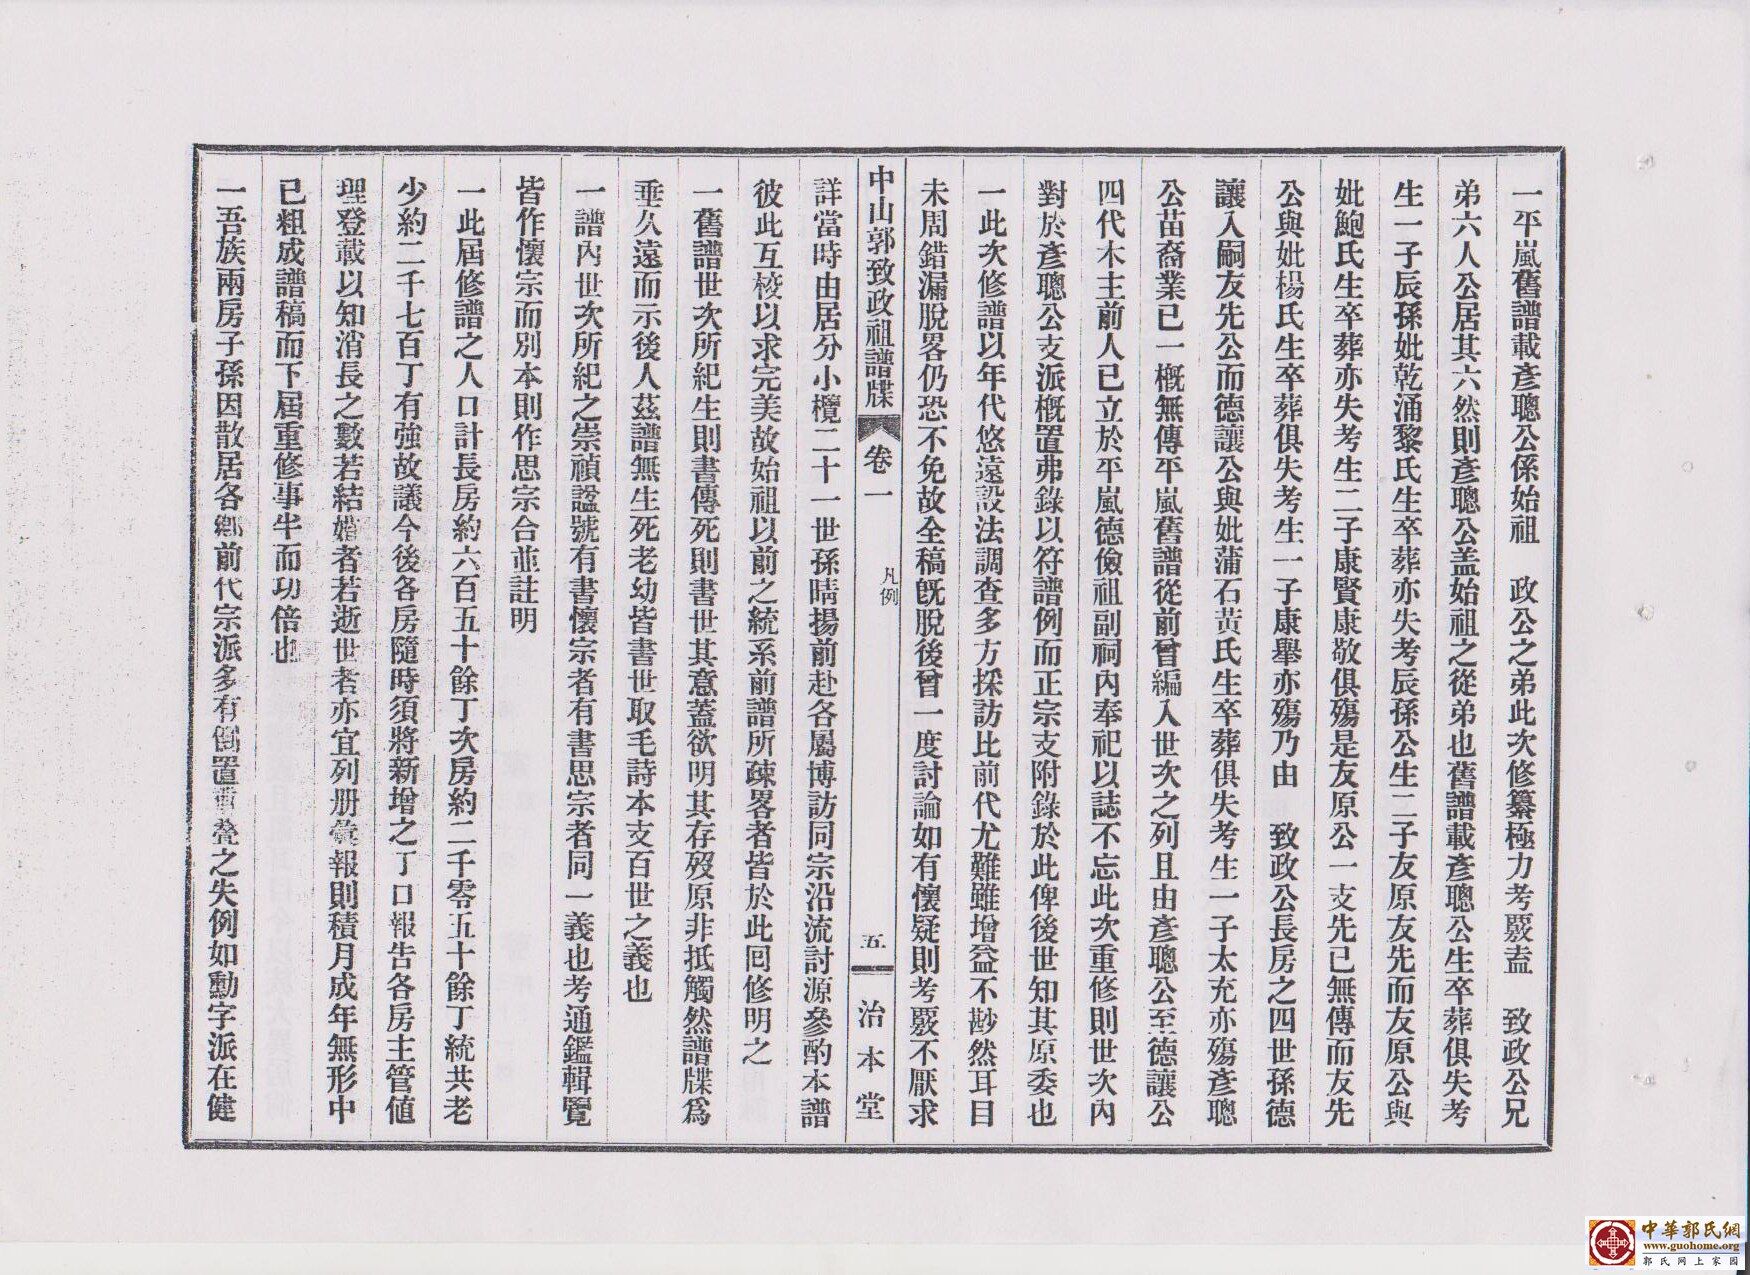 一平嵐舊譜載彥聰公係始祖　政公之弟此次修纂極力考覈蓋　致政公兄
弟六人公居其六然則彥聰公盖始祖之從弟也舊譜載彥聰公生卒葬俱失考
生一子辰孫妣乾涌黎氏生卒葬亦失考辰孫公生二子友原友先而友原公與
妣鮑氏生卒葬亦失考生二子康賢康敬俱殤是友原公一支先已無傳而友先
公與妣楊氏生卒葬俱失考生一子康舉亦殤乃由　致政公長房之四世孫德
讓入嗣友先公而德讓公與妣蒲石黃氏生卒葬俱失考生一子太充亦殤彥聰
公苗裔業已一概無傳平嵐舊譜從前曾編入世次之列且由彥聰公至德讓公
四代木主前人已立於平嵐德儉祖副祠內奉祀以誌不忘此次重修則世次內
對於彥聰公支派概置弗錄以符譜例而正宗支附錄於此俾後世知其原委也
一此次修譜以年代悠遠設法調查多方採訪比前代尤難雖增益不尠然耳目
未周錯漏脫畧仍恐不免故全稿旣脫後曾一度討論如有懷疑則考覈不厭求
中山郭致政祖譜牒　卷一　凡例　五　治本堂
詳當時由居分小欖二十一世孫晴揚前赴各屬博訪同宗沿流討源參酌本譜
彼此互校以求完美故始祖以前之統系前譜所疎畧者皆於此回修明之
一舊譜世次所紀生則書傳死則書世其意蓋欲明其存歿原非抵觸然譜牒爲
垂久遠而示後人茲譜無生死老幼皆書世取毛詩本支百世之義也
一譜內世次所紀之崇禎諡號有書懷宗者有書思宗者同一義也考通鑑輯覽
皆作懷宗而別本則作思宗合並註明
一此屆修譜之人口計長房約六百五十餘丁次房約二千零五十餘丁統共老
少約二千七百丁有強故議今後各房隨時須將新增之丁口報告各房主管値
理登載以知消長之數若結婚者若逝世者亦宜列册彙報則積月成年無形中
已粗成譜稿而下屆重修事半而功倍也
一吾族兩房子孫因散居各鄉前代宗派多有倒置重叠之失例如勳字派在健
中華郭氏網
www.guohome.org
郭氏网上家园